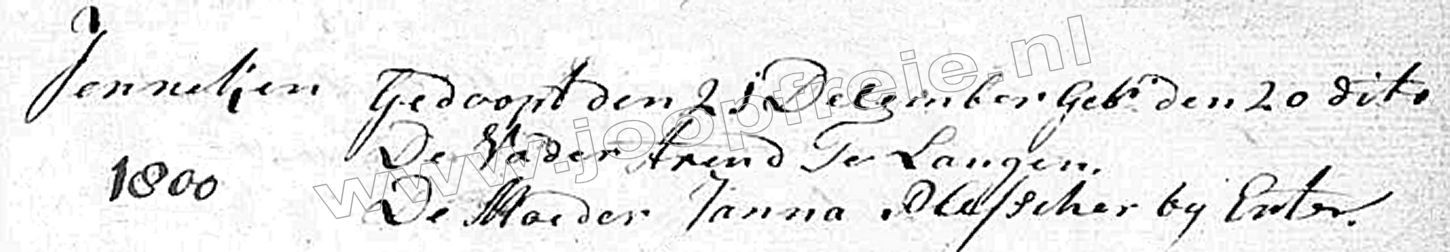 Jenneken Gedoopt den 25 December Geb: den 20 dito
De Vader Arend Te Langen.
1800
De Moeder Janna by Enter.
www.joopfreie.nl